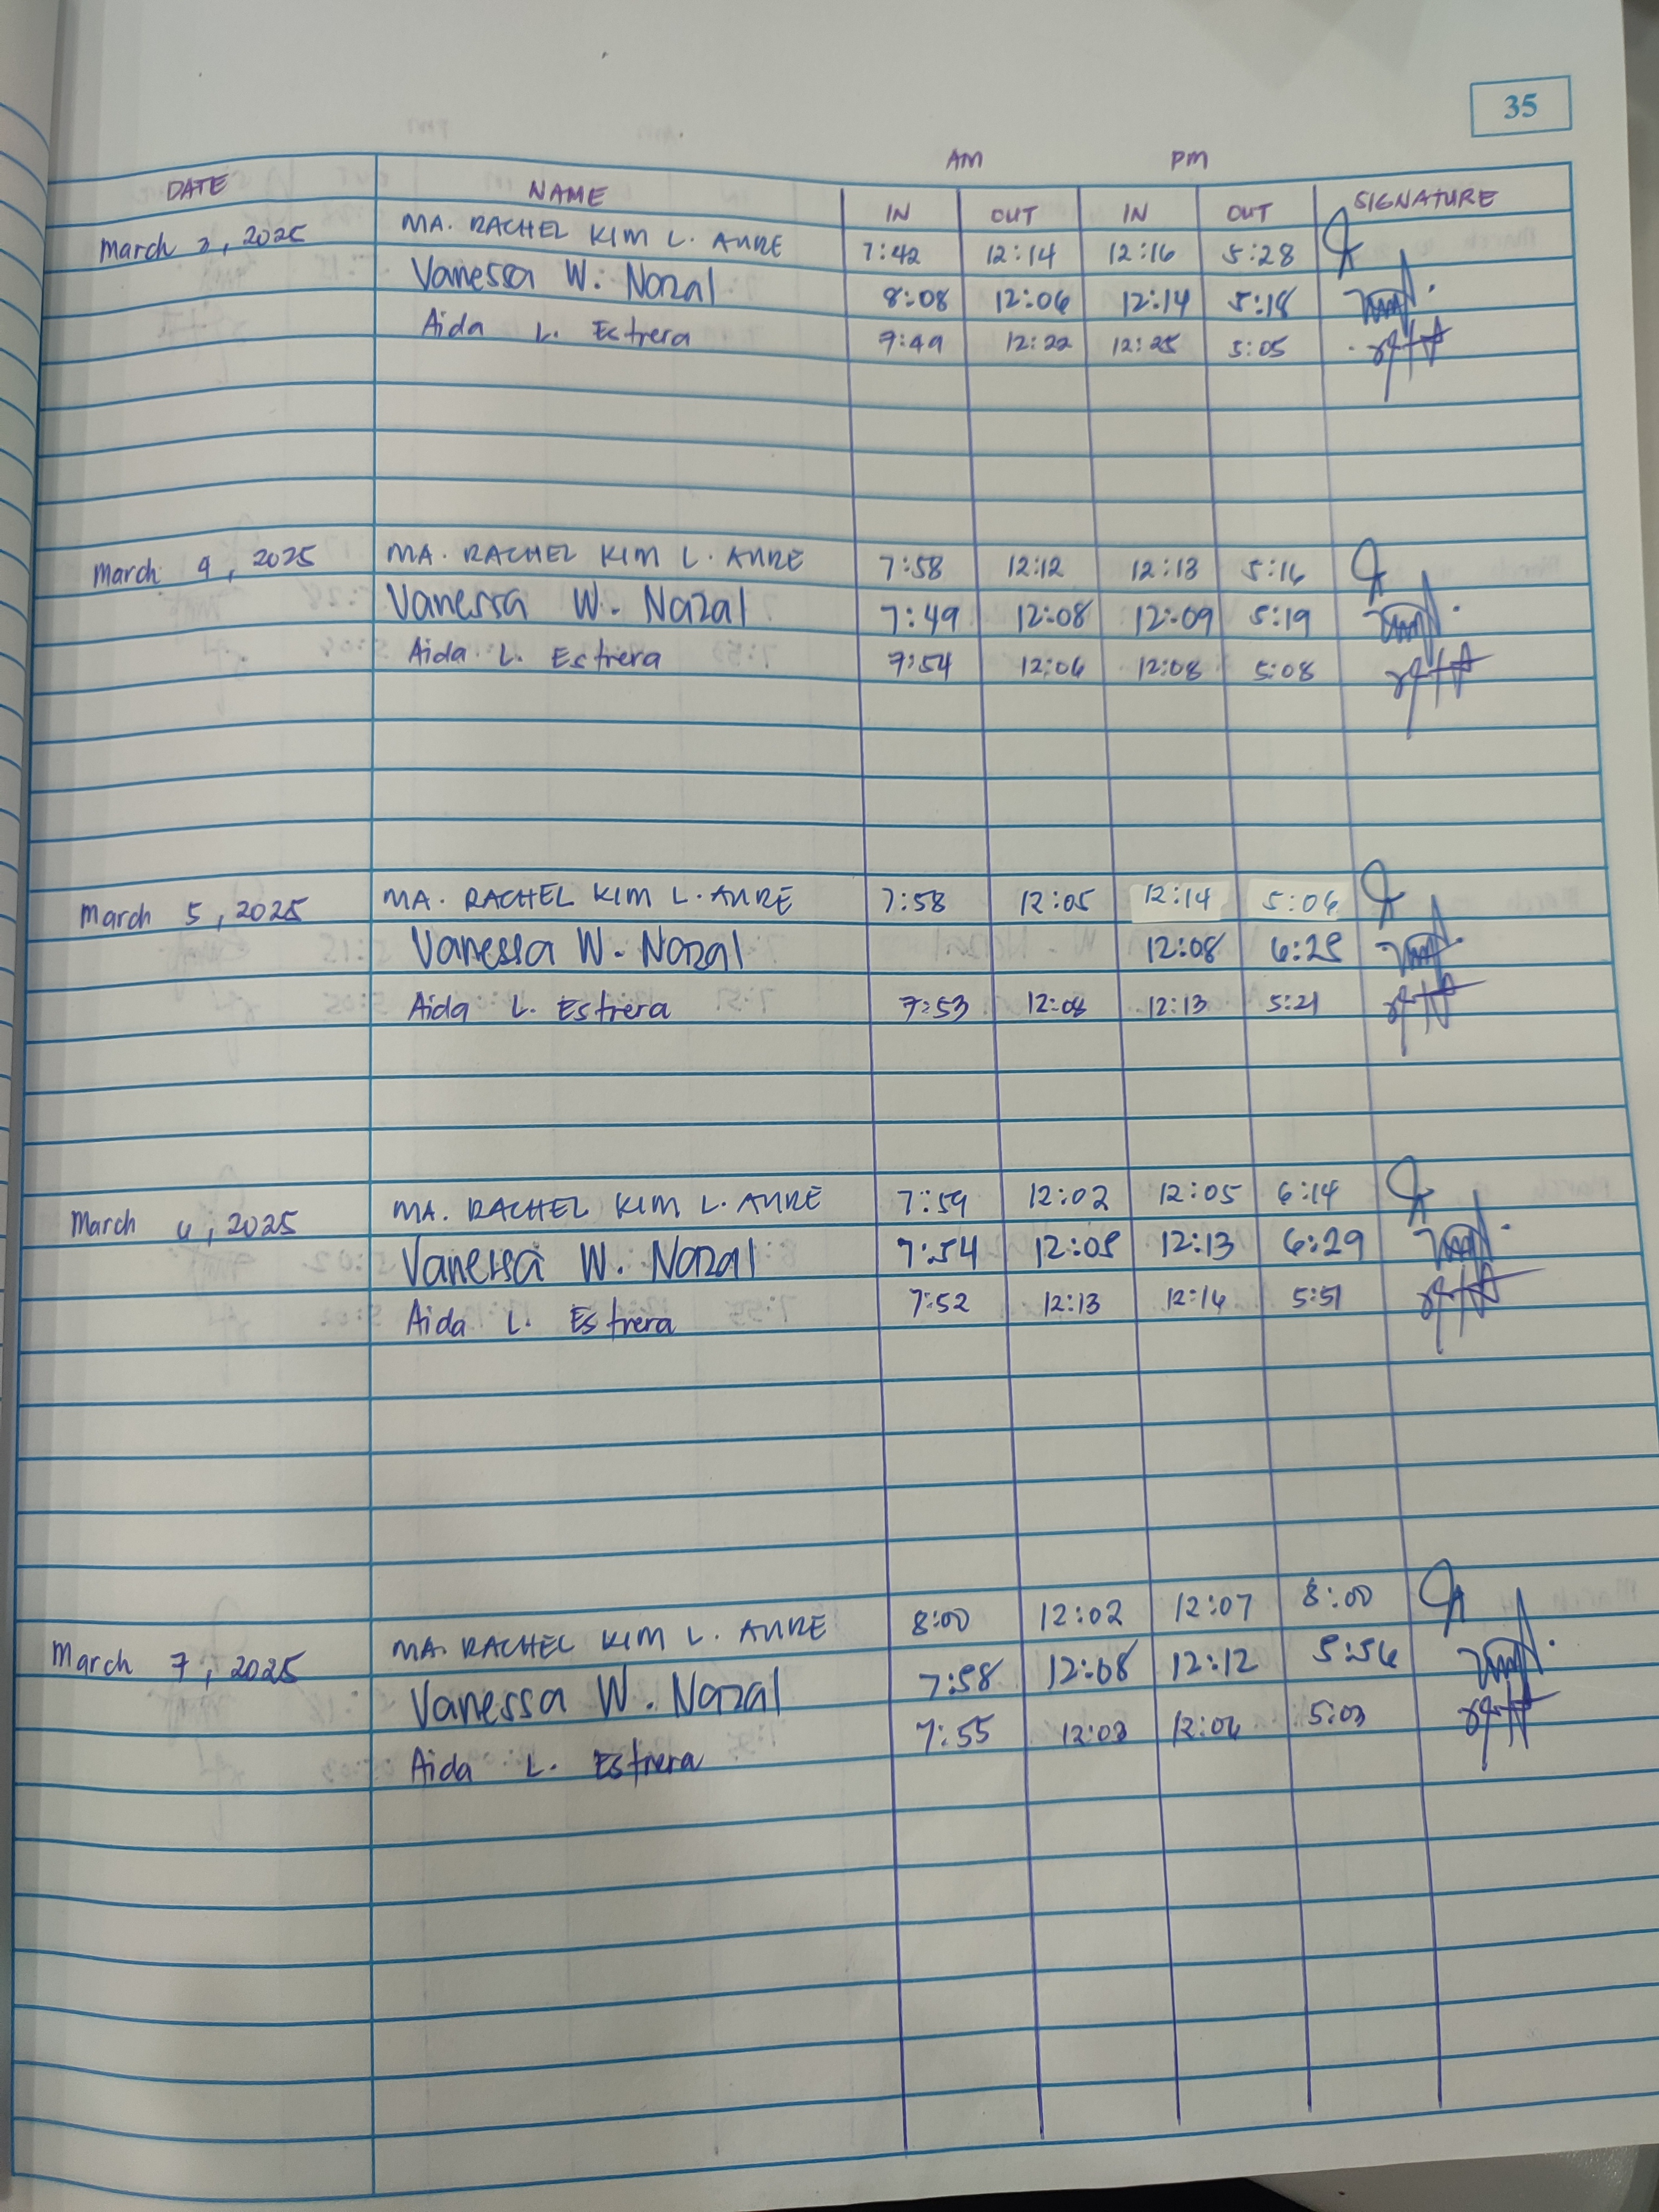 35
AM PM
DATE NAME IN OUT IN OUT SIGNATURE
March 3, 2025 MA. RACHEL KIM L. AURE 7:42 12:14 12:16 5:28
Vanessa W. Nazal 8:08 12:06 12:14 5:18
Aida L. Estrera 7:49 12:22 12:25 5:05
March 4, 2025 MA. RACHEL KIM L. AURE 7:58 12:12 12:13 5:16
Vanessa W. Nazal 7:49 12:08 12:09 5:19
Aida L. Estrera 7:54 12:06 12:08 5:08
March 5, 2025 MA. RACHEL KIM L. AURE 7:58 12:05 12:14 5:06
Vanessa W. Nazal 12:08 6:25
Aida L. Estrera 7:53 12:08 12:13 5:21
March 6, 2025 MA. RACHEL KIM L. AURE 7:59 12:02 12:05 6:14
Vanessa W. Nazal 7:54 12:08 12:13 6:29
Aida L. Estrera 7:52 12:13 12:16 5:51
March 7, 2025 MA. RACHEL KIM L. AURE 8:00 12:02 12:07 8:00
Vanessa W. Nazal 7:58 12:08 12:12 5:56
Aida L. Estrera 7:55 12:03 12:06 5:03